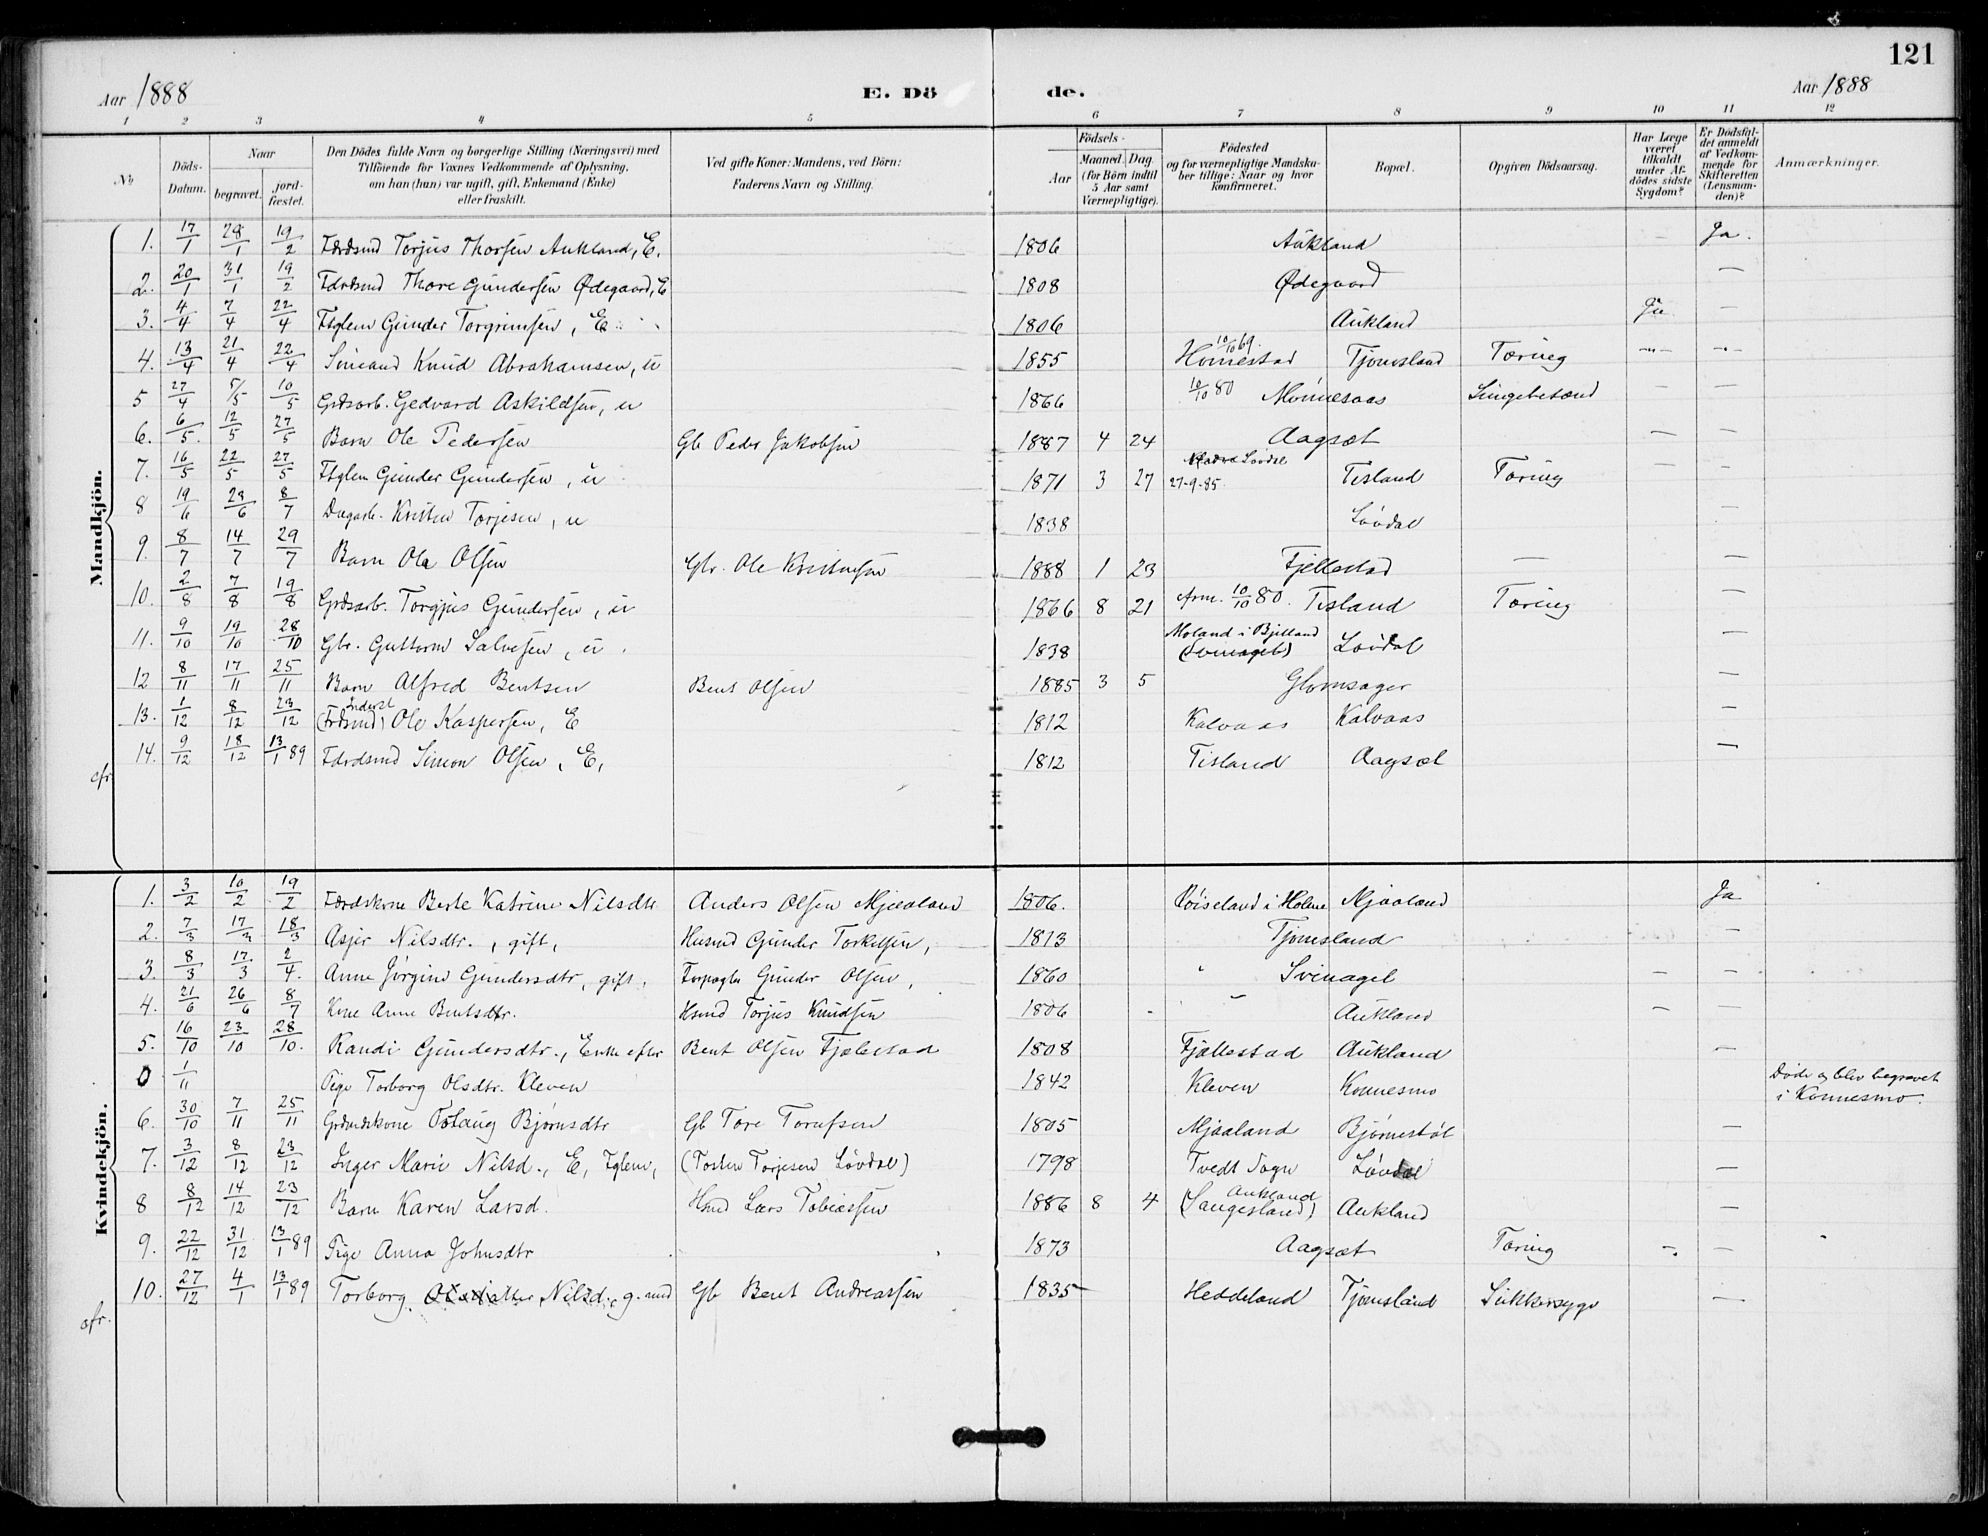 121
Aar 1888 E. Dö de. Aar 1888
1 2 3 4 5 6 7 8 9 10 11 12
No. Döds-Datum. Naar begravet. jordfæstet. Den Dödes fulde Navn og borgerlige Stilling (Næringsvei) med Tilföiende for Voxnes Vedkommende af Oplysning, om han (hun) var ugift, gift, Enkemand (Enke) eller fraskilt. Ved gifte Koner: Mandens, ved Börn: Faderens Navn og Stilling. Födsels- Aar Maaned. Dag. (for Börn indtil 5 Aar samt Værnepligtige). Födested og for værnepligtige Mandskaber tillige: Naar og hvor Konfirmeret. Bopæl. Opgiven Dödsaarsag. Har Læge været tilkaldt under Afdödes sidste Sygdom? Er Dödsfaldet anmeldt af Vedkommende for Skifteretten (Lensmanden)? Anmærkninger.
Mandkjön.
1. 17/1 28/1 19/2 Fdrdsmd Torjus Thorsen Aukland, E. 1806 Aukland Ja.
2. 20/1 31/1 19/2 Fdrdsmd Thore Gundersen Ødegaard, E 1808 Ødegaard —
3. 4/4 7/4 22/4 Fsglem Gunder Torgrimsen, E 1806 Aukland Ja —
4. 13/4 21/4 22/4 Smeand Knud Abrahamsen, u 1855 Homestad 10/10 69. Tjomsland Tæring —"— —"—
5 27/4 5/5 10/5 Grdsarb. Gedvard Askildsen, u 1866 10/10 80 Monnesaas Lungebetænd — —
6. 6/5. 12/5 27/5 Barn Ole Pedersen Gb Peder Jakobsen 1887 4 24 Aagsæt — —
7. 16/5 22/5 27/5 Fsglem Gunder Gundersen, u 1871 3 27 Løvdal 27-9-85. Tisland Tæring — —
8 19/6 28/6 8/7 Dagarb. Kristen Torjesen, u 1838 Løvdal —
9. 8/7 14/7 29/7 Barn Ole Olsen Gbr. Ole Kristensen 1888 1 23 Fjellestad — —
10. 2/8 7/8 19/8 Grdsarb. Torgjus Gundersen, u 1866 8 21 10/10 80. Tisland Tæring —
11. 9/10 19/10 28/10 Gbr. Guttorm Salvesen, u. 1838 Moland i Bjelland (Svinagel) Løvdal —
12 8/11 17/11 25/11 Barn Alfred Bentsen Bent Olsen 1885 3 5 Glomsager —
13. 1/12 8/12 23/12 (Frdsmd) Inderst Ole Kaspersen, E 1812 Kalvaas Kalvaas —
14. 9/12 18/12 13/1 89 Fdrdsmd Simon Olsen, E, 1812 Tisland Aagsæt —
afr.
Kvindekjön.
1. 3/2 10/2 19/2 Fdrdskone Berte Katrine Nilsdtr Anders Olsen Mjaaland 1806. Røiseland i Holme Mjaaland Ja
2. 7/3 17/3 18/3 Asjer Nilsdtr., gift, Husmd Gunder Torkelsen, 1813 Tjomsland —
3. 8/3 17/3 2/4. Anne Jørgine Gundersdtr, gift. Forpagter Gunder Olsen, 1860 " Svinagel — —
4. 21/6 26/6 8/7 Kone Anne Bentsdtr. Hsmd Torjus Knudsen 1806 " Aukland —
5. 16/10 23/10 28/10. Randi Gundersdtr., Enke efter Bent Olsen Fjælestad 1808 Fjællestad Aukland —
0 1/11 Pige Torborg Olsdtr. Kleven 1842 Kleven Konnesmo Døde og blev begravet i Konnesmo.
6. 30/10 7/11 25/11 Grdmdskone Tolaug Bjørnsdtr Gb Tore Torufsen 1805 Mjaaland Bjørnestøl —
7. 3/12 8/12 23/12 Inger Marie Nilsd., E, Fglem, (Tosten Torjesen Løvdal) 1798 Tvedt Sogn Løvdal —
8 8/12 14/12 23/12 Barn Karen Larsd. Hsmd Lars Tobiassen 1886 8 4 Aukland (Laugesland) Aukland —
9. 22/12 31/12 13/1 89 Pige Anna Johnsdtr 1873 Aagsæt Tæring — —
10. 27/12 4/1 13/1 89 Torborg Nilsd., g. med Gb Bent Andreassen 1835 Heddeland Tjomsland Sukkersyge —
afr.